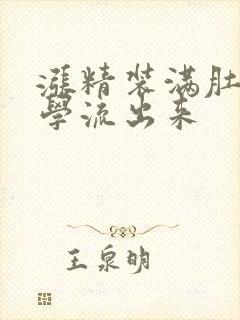 漲精装满肚
學流出来
王泉明